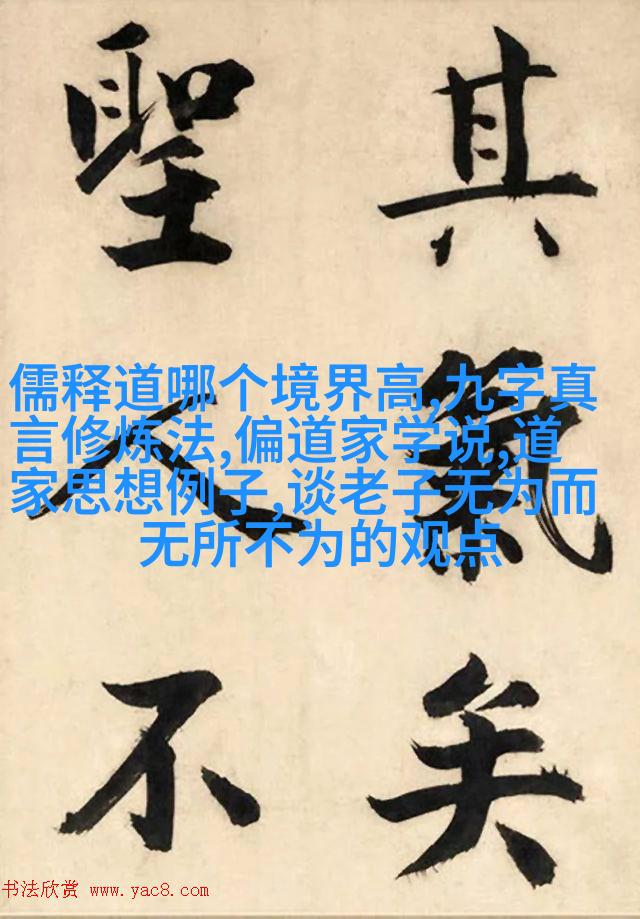 其氣矣
聖人不
儒释道哪个境界高,九字真
言修炼法,偏道家学说,道
家思想例子,谈老子无为而
无所不为的观点
书法欣赏 www.yac8.com